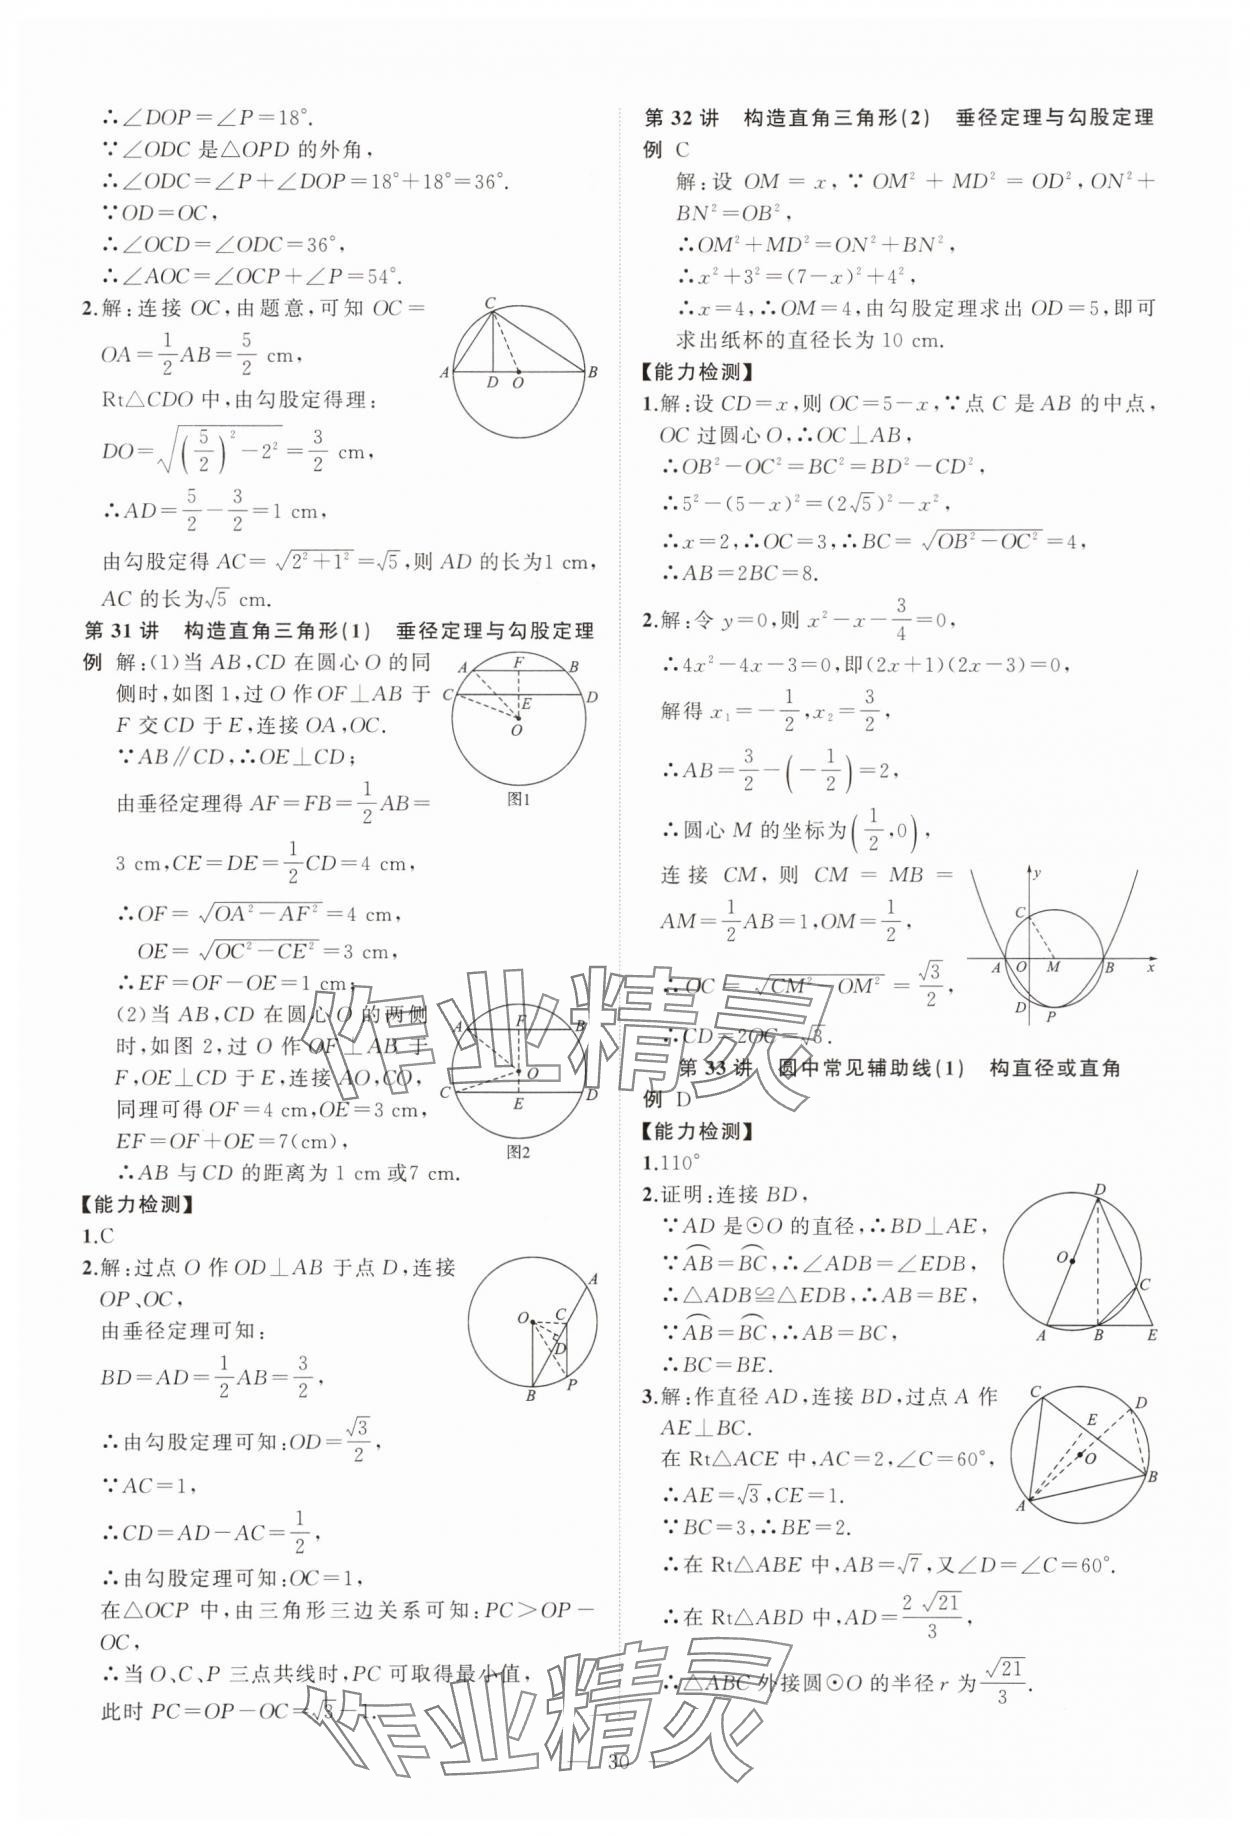 ∴∠DOP=∠P=18°.
∵∠ODC 是△OPD 的外角,
∴∠ODC=∠P+∠DOP=18°+18°=36°.
∵OD=OC,
∴∠OCD=∠ODC=36°,
∴∠AOC=∠OCP+∠P=54°.
2.解:连接 OC,由题意,可知 OC=
OA=1/2AB=5/2 cm,
Rt△CDO 中,由勾股定得理:
DO=√((5/2)²-2²)=3/2 cm,
∴AD=5/2-3/2=1 cm,
由勾股定得 AC=√(2²+1²)=√5,则 AD 的长为1 cm,
AC 的长为√5 cm.
C
A D O B
第 31 讲 构造直角三角形(1) 垂径定理与勾股定理
例 解:(1)当 AB,CD 在圆心 O 的同
侧时,如图 1,过 O 作 OF⊥AB 于
F 交 CD 于 E,连接 OA,OC.
∵AB∥CD,∴OE⊥CD;
由垂径定理得 AF=FB=1/2AB=
3 cm,CE=DE=1/2CD=4 cm,
∴OF=√(OA²-AF²)=4 cm,
OE=√(OC²-CE²)=3 cm,
∴EF=OF-OE=1 cm;
(2)当 AB,CD 在圆心 O 的两侧
时,如图 2,过 O 作 OF⊥AB 于
F,OE⊥CD 于 E,连接 AO,CO,
同理可得 OF=4 cm,OE=3 cm,
EF=OF+OE=7(cm),
∴AB 与 CD 的距离为 1 cm 或7 cm.
A F B
C E D
O
图1
A F B
O
C E D
图2
【能力检测】
1.C
2.解:过点 O 作 OD⊥AB 于点 D,连接
OP、OC,
由垂径定理可知:
BD=AD=1/2AB=3/2,
∴由勾股定理可知:OD=√3/2,
∵AC=1,
∴CD=AD-AC=1/2,
∴由勾股定理可知:OC=1,
在△OCP 中,由三角形三边关系可知:PC>OP-
OC,
∴当 O、C、P 三点共线时,PC 可取得最小值,
此时 PC=OP-OC=√3-1.
A
O C
D
B P
第 32 讲 构造直角三角形(2) 垂径定理与勾股定理
例 C
解:设 OM=x,∵OM²+MD²=OD²,ON²+
BN²=OB²,
∴OM²+MD²=ON²+BN²,
∴x²+3²=(7-x)²+4²,
∴x=4,∴OM=4,由勾股定理求出 OD=5,即可
求出纸杯的直径长为 10 cm.
【能力检测】
1.解:设 CD=x,则 OC=5-x,∵点 C 是 AB 的中点,
OC 过圆心 O,∴OC⊥AB,
∴OB²-OC²=BC²=BD²-CD²,
∴5²-(5-x)²=(2√5)²-x²,
∴x=2,∴OC=3,∴BC=√(OB²-OC²)=4,
∴AB=2BC=8.
2.解:令 y=0,则 x²-x-3/4=0,
∴4x²-4x-3=0,即(2x+1)(2x-3)=0,
解得 x₁=-1/2,x₂=3/2,
∴AB=3/2-(-1/2)=2,
∴圆心 M 的坐标为(1/2,0),
连接 CM,则 CM=MB=
AM=1/2AB=1,OM=1/2,
∴OC=√(CM²-OM²)=√3/2,
∴CD=2OC=√3.
y
C
A O M B x
D P
第 33 讲 圆中常见辅助线(1) 构直径或直角
例 D
【能力检测】
1.110°
2.证明:连接 BD,
∵AD 是⊙O 的直径,∴BD⊥AE,
∵⌒AB=⌒BC,∴∠ADB=∠EDB,
∴△ADB≌△EDB,∴AB=BE,
∵⌒AB=⌒BC,∴AB=BC,
∴BC=BE.
D
O
C
A B E
3.解:作直径 AD,连接 BD,过点 A 作
AE⊥BC.
在 Rt△ACE 中,AC=2,∠C=60°,
∴AE=√3,CE=1.
∵BC=3,∴BE=2.
∴在 Rt△ABE 中,AB=√7,又∠D=∠C=60°.
∴在 Rt△ABD 中,AD=2√21/3,
∴△ABC外接圆⊙O 的半径 r 为√21/3.
C D
E
O
B
A
作业精灵
作业精灵
— 30 —